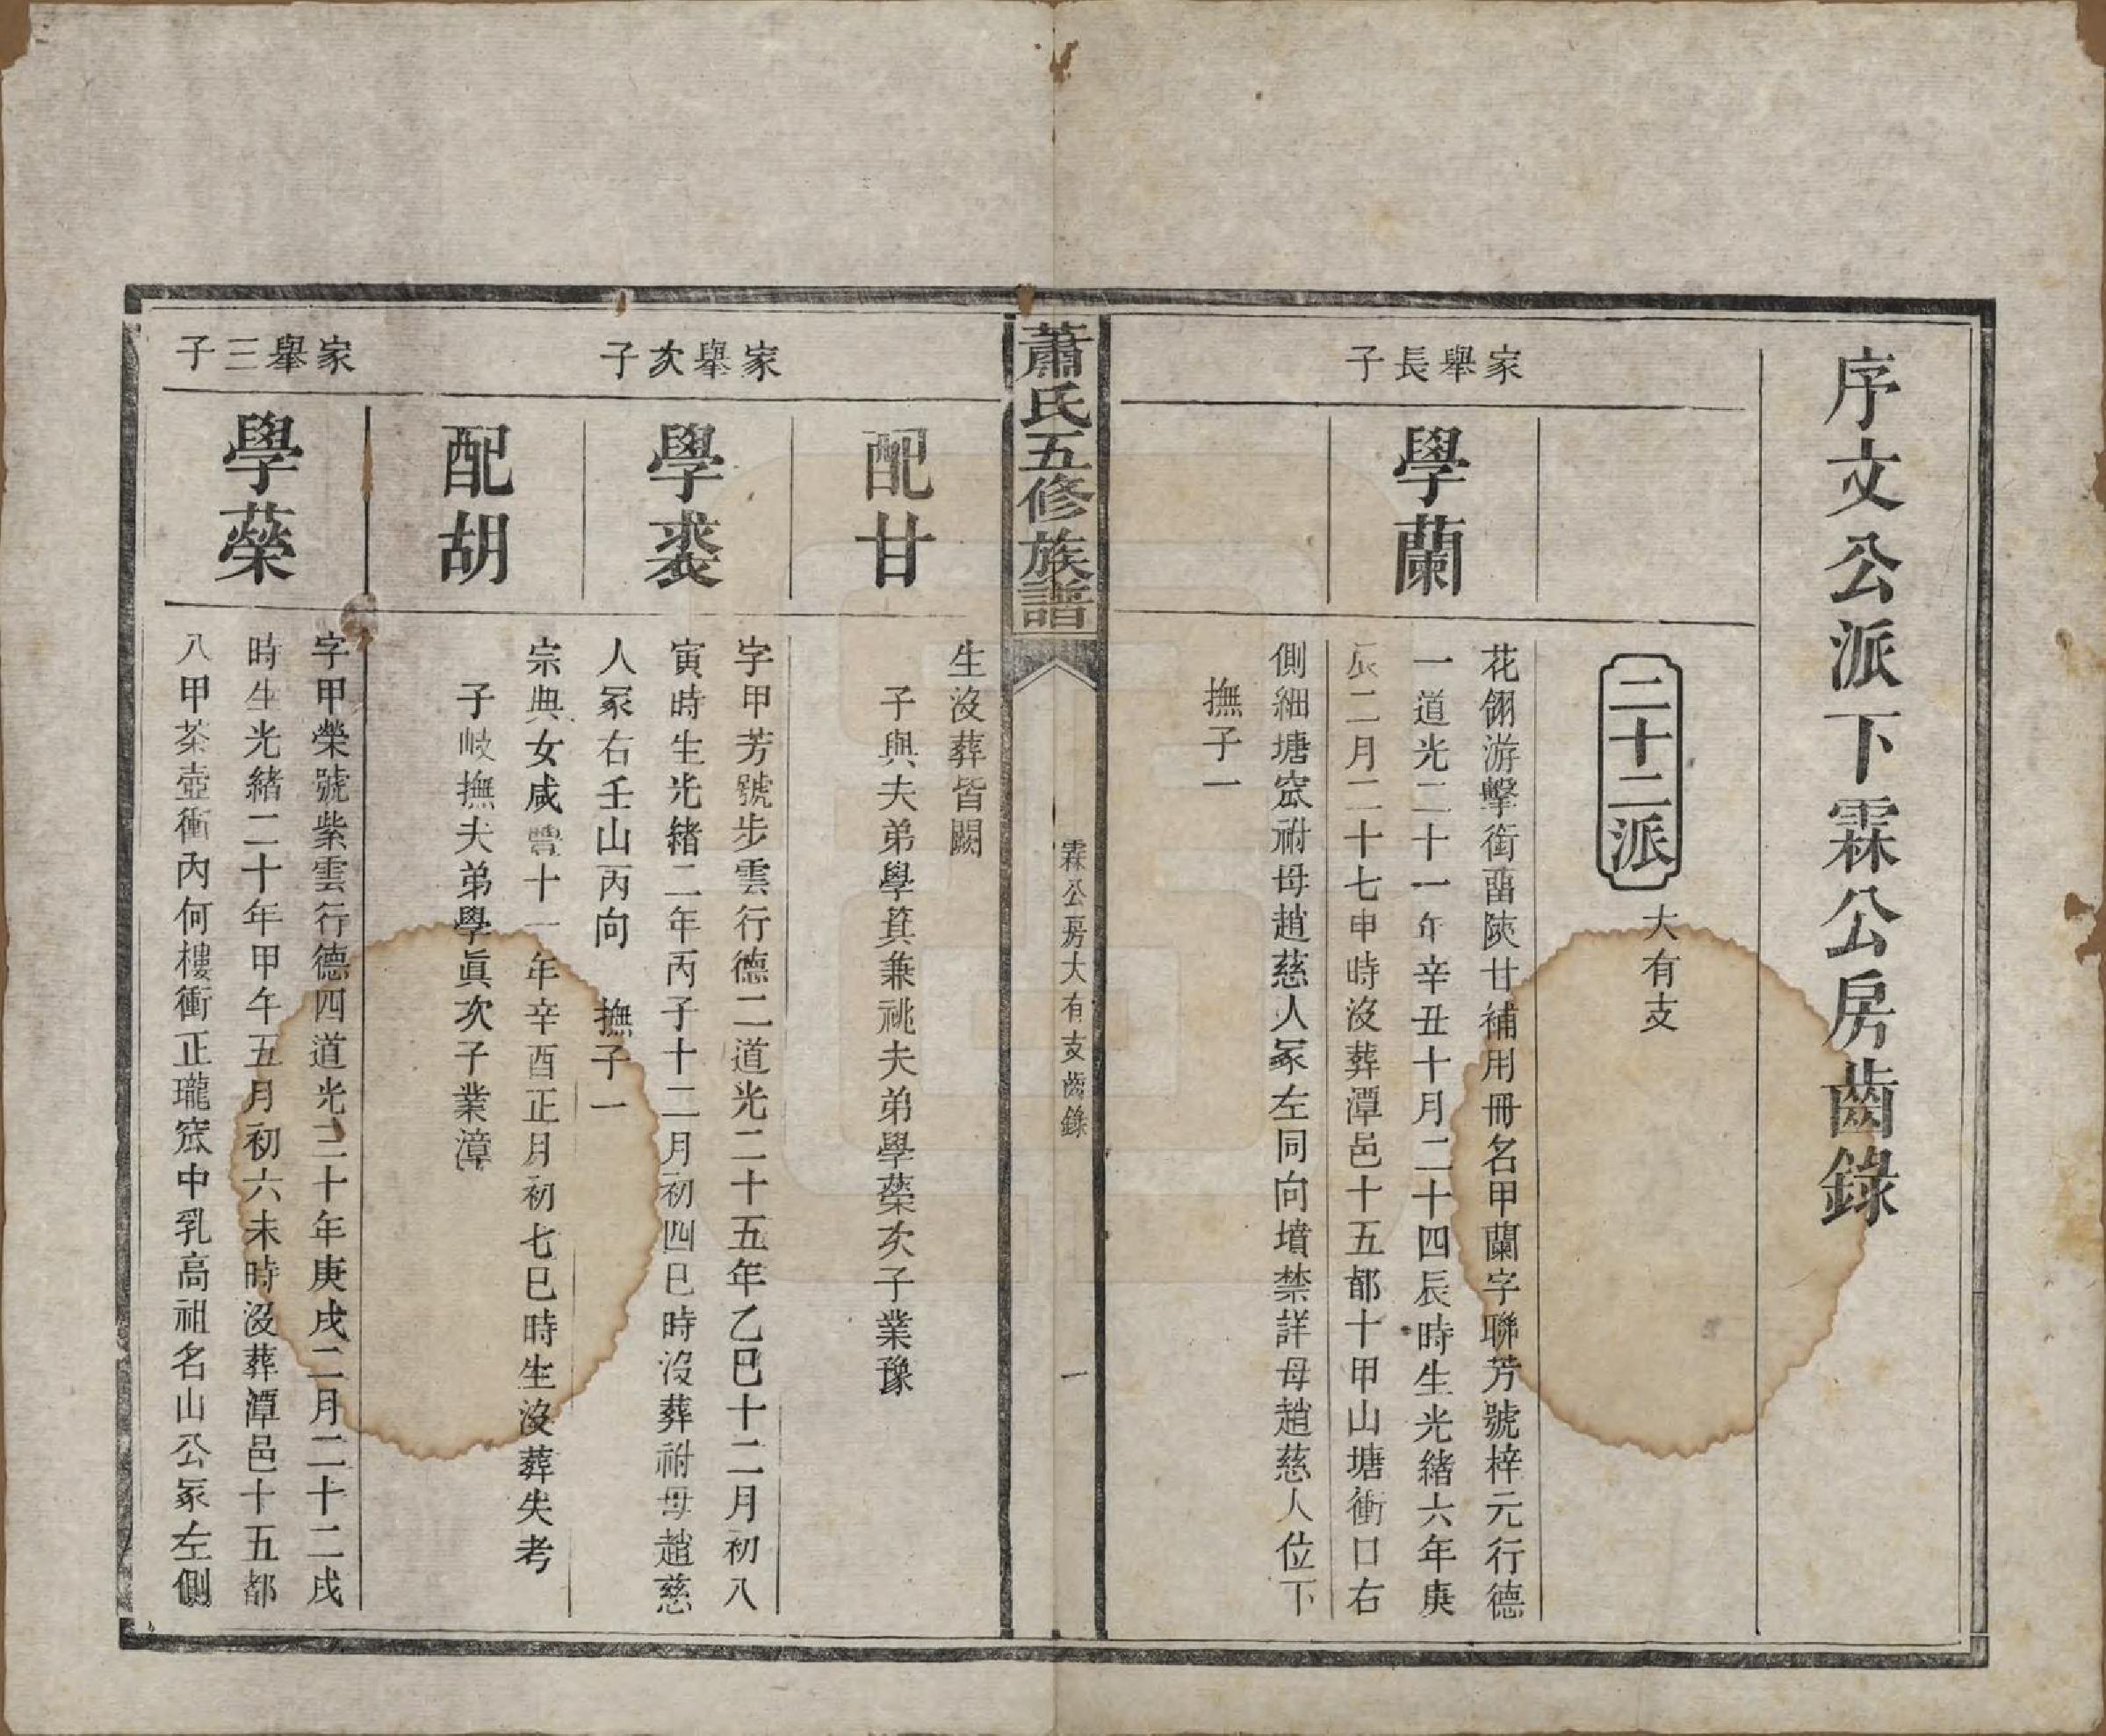 序文公派下霖公房齒錄
二十二派
大有支
家舉長子
學蘭
花翎游擊銜畱陝甘補用冊名甲蘭字聯芳號梓元行德
一道光二十一年辛丑十月二十四辰時生光緒六年庚
辰二月二十七申時沒葬潭邑十五都十甲山塘衝口右
側細塘窊祔母趙慈人冢左同向墳禁詳母趙慈人位下
撫子一
蕭氏五修族譜
霖公房大有支齒錄
一
配甘
生沒葬皆闕
子與夫弟學箕兼祧夫弟學蘂次子業豫
家舉次子
學裘
字甲芳號步雲行德二道光二十五年乙巳十二月初八
寅時生光緒二年丙子十二月初四巳時沒葬祔母趙慈
人冢右壬山丙向 撫子一
配胡
宗典女咸豐十一年辛酉正月初七巳時生沒葬失考
子岐撫夫弟學眞次子業漳
家舉三子
學蘂
字甲榮號紫雲行德四道光三十年庚戌二月二十二戌
時生光緒二十年甲午五月初六未時沒葬潭邑十五都
八甲茶壺衝內何樓衝正瓏窊中乳高祖名山公冢左側